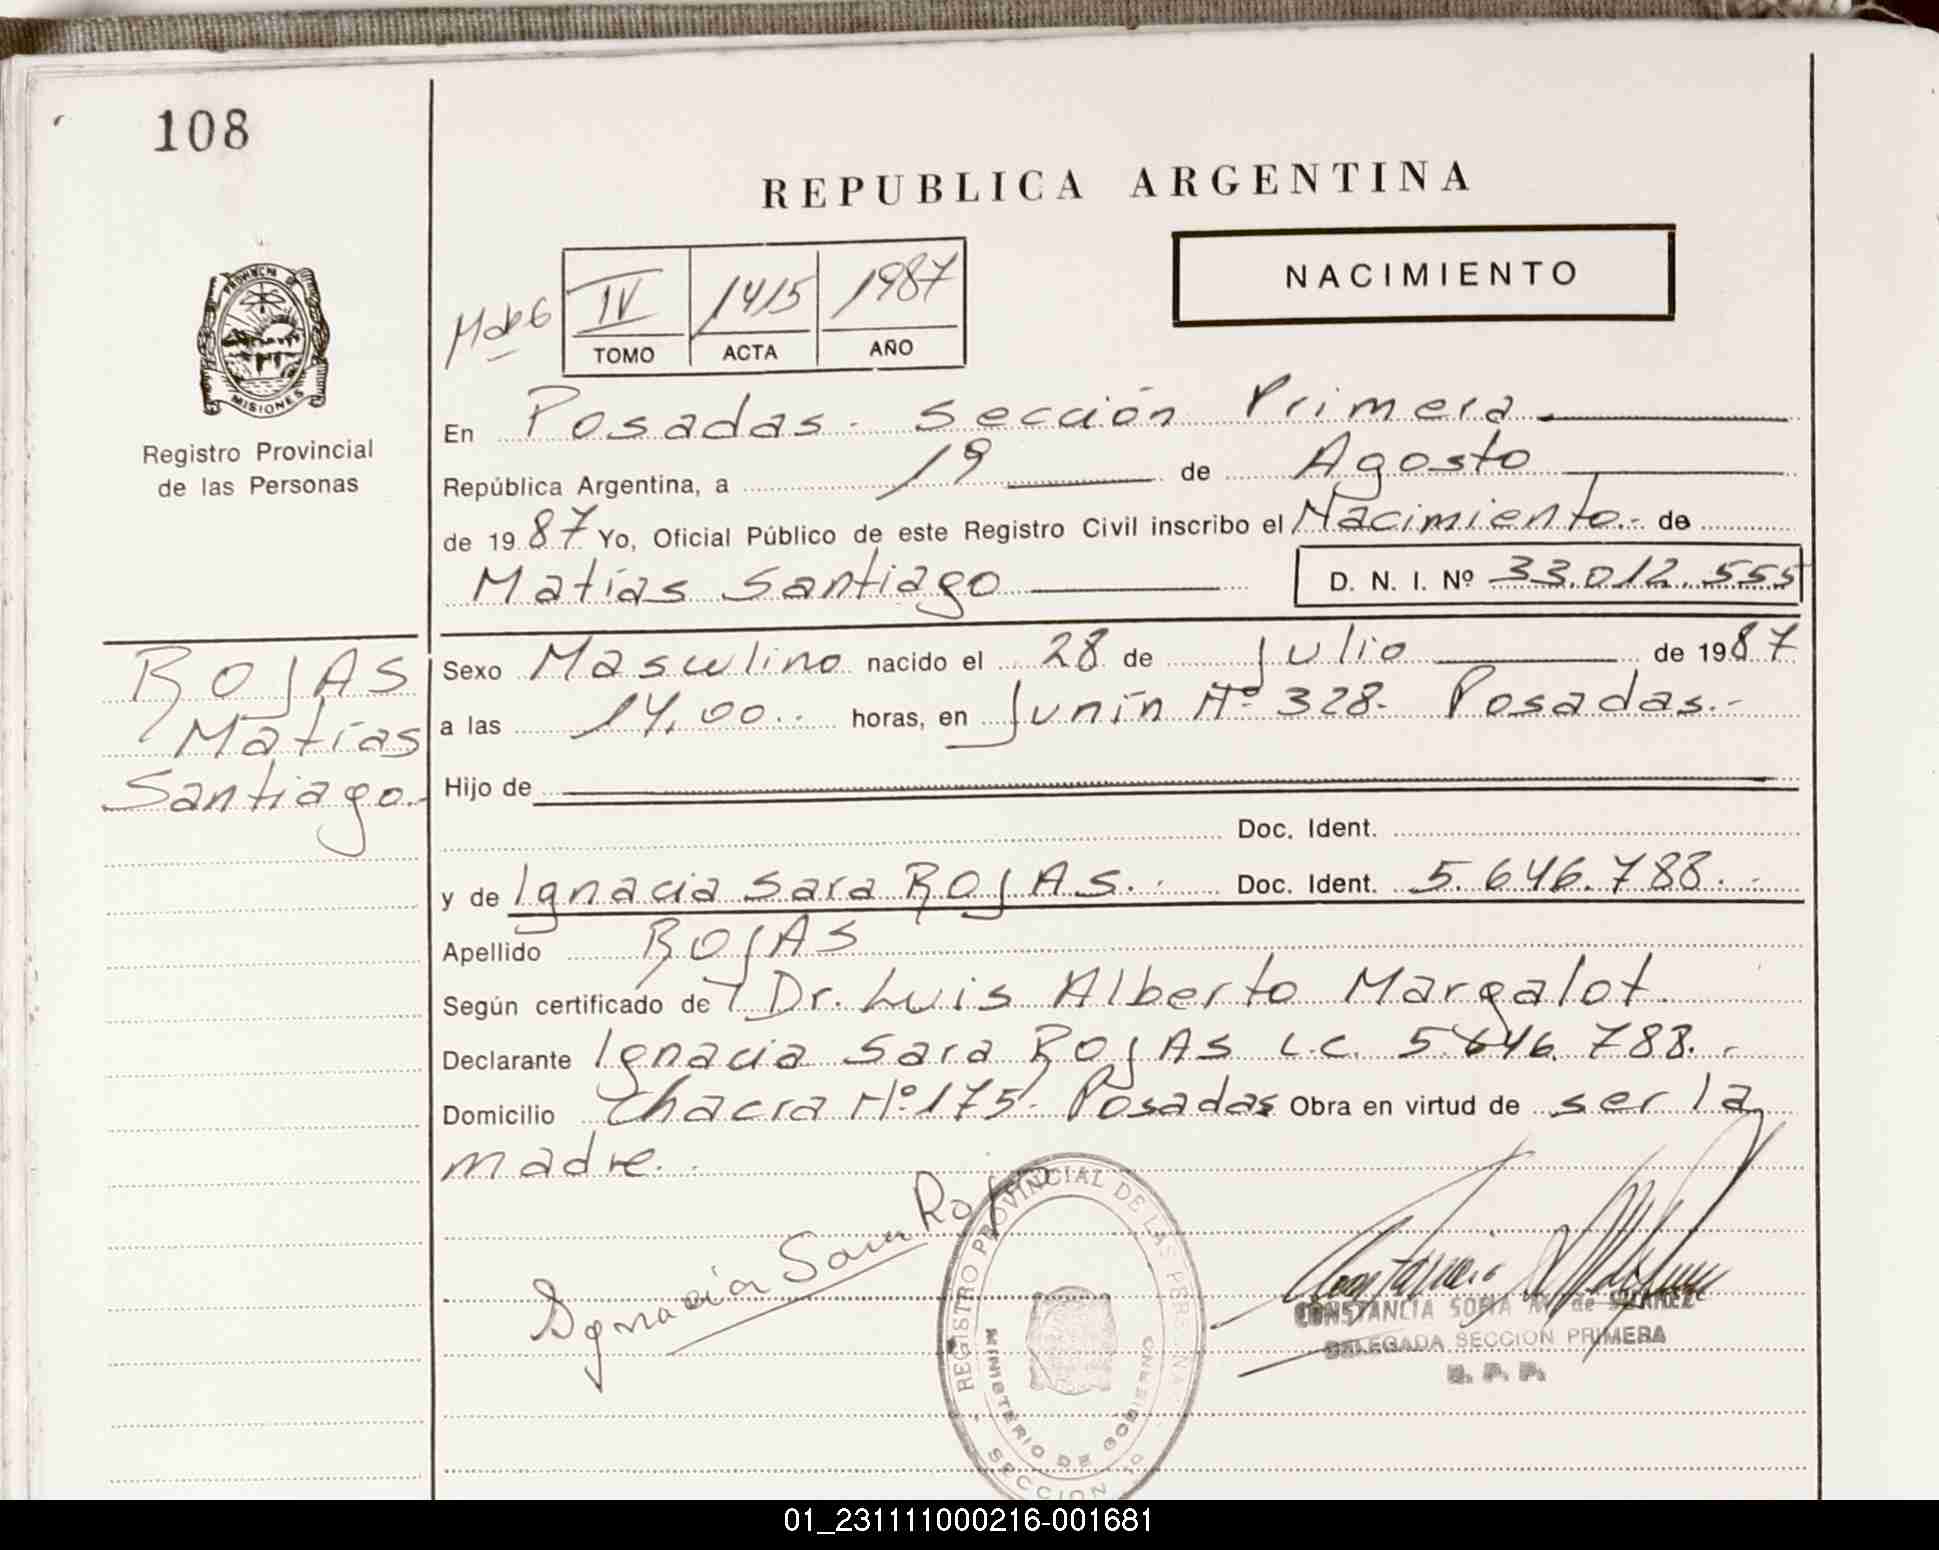 108
REPUBLICA ARGENTINA
NACIMIENTO
IV 1415 1987
TOMO ACTA AÑO
PROVINCIA DE
MISIONES
Registro Provincial
de las Personas
En Posadas. Sección Primera
República Argentina, a 19 de Agosto
de 1987 Yo, Oficial Público de este Registro Civil inscribo el Nacimiento.- de
Matías Santiago D. N. I. Nº 33.012.555
ROJAS
Matías
Santiago.-
Sexo Masculino nacido el 28 de Julio de 1987
a las 14,00.. horas, en Junín Nº 328. Posadas.-
Hijo de
Doc. Ident.
y de Ignacia Sara ROJAS. Doc. Ident. 5.646.788.-
Apellido ROJAS
Según certificado de Dr. Luis Alberto Margalot.
Declarante Ignacia Sara ROJAS L.C. 5.646.788.-
Domicilio Chacra Nº 175. Posadas Obra en virtud de ser la
madre.
Ignacia Sara Rojas
REGISTRO PROVINCIAL DE LAS PERSONAS
MINISTERIO DE GOBIERNO
SECCION
CONSTANCIA SOFIA M. de SUAREZ
DELEGADA SECCION PRIMERA
R. P. P.
01_231111000216-001681